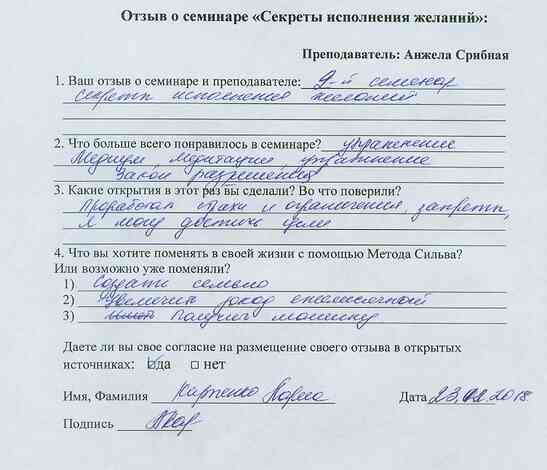 Отзыв о семинаре «Секреты исполнения желаний»:
Преподаватель: Анжела Срибная
1. Ваш отзыв о семинаре и преподавателе: 2-й семенар
секреты исполнения желаний
2. Что больше всего понравилось в семинаре? упражнение
Медиум, медитация, упражнение
Закон разрешения
3. Какие открытия в этот раз вы сделали? Во что поверили?
Проработал страхи и ограничения, запреты,
я могу достичь цели
4. Что вы хотите поменять в своей жизни с помощью Метода Сильва?
Или возможно уже поменяли?
1) Создать семью
2) Увеличить доход ежемесячной
3) Получит машину
Даете ли вы свое согласие на размещение своего отзыва в открытых
источниках: да нет
Имя, Фамилия Карпенко
Дата 23.02.2018
Подпись